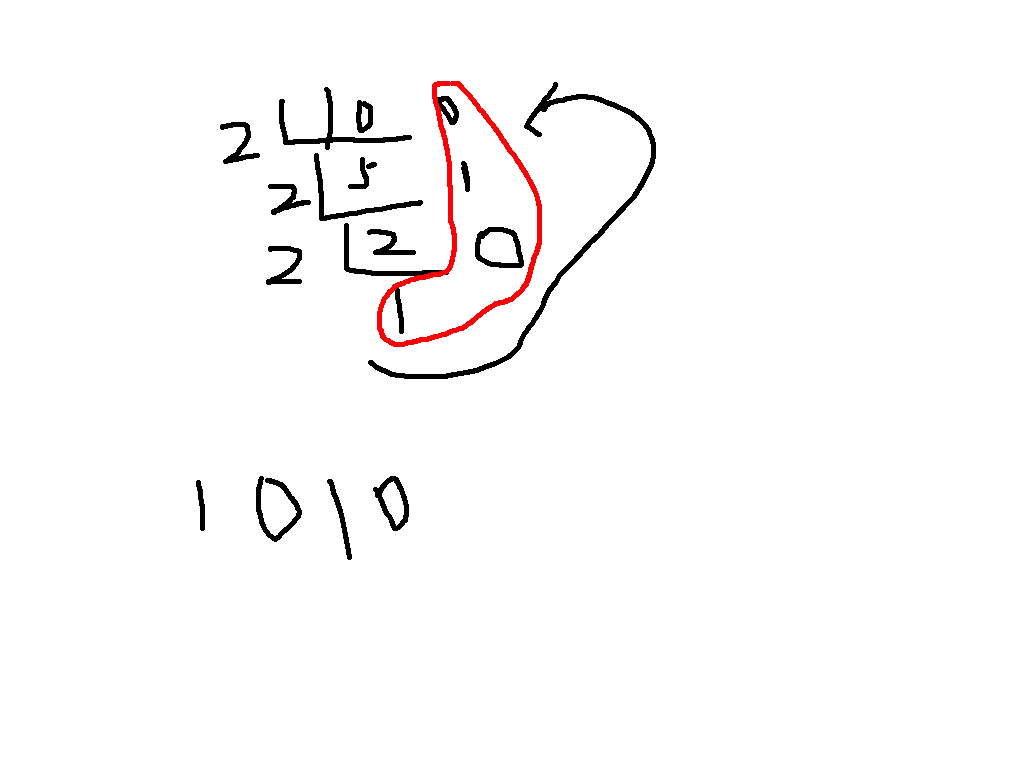 2 10 0
2 5 1
2 2 0
1
1010